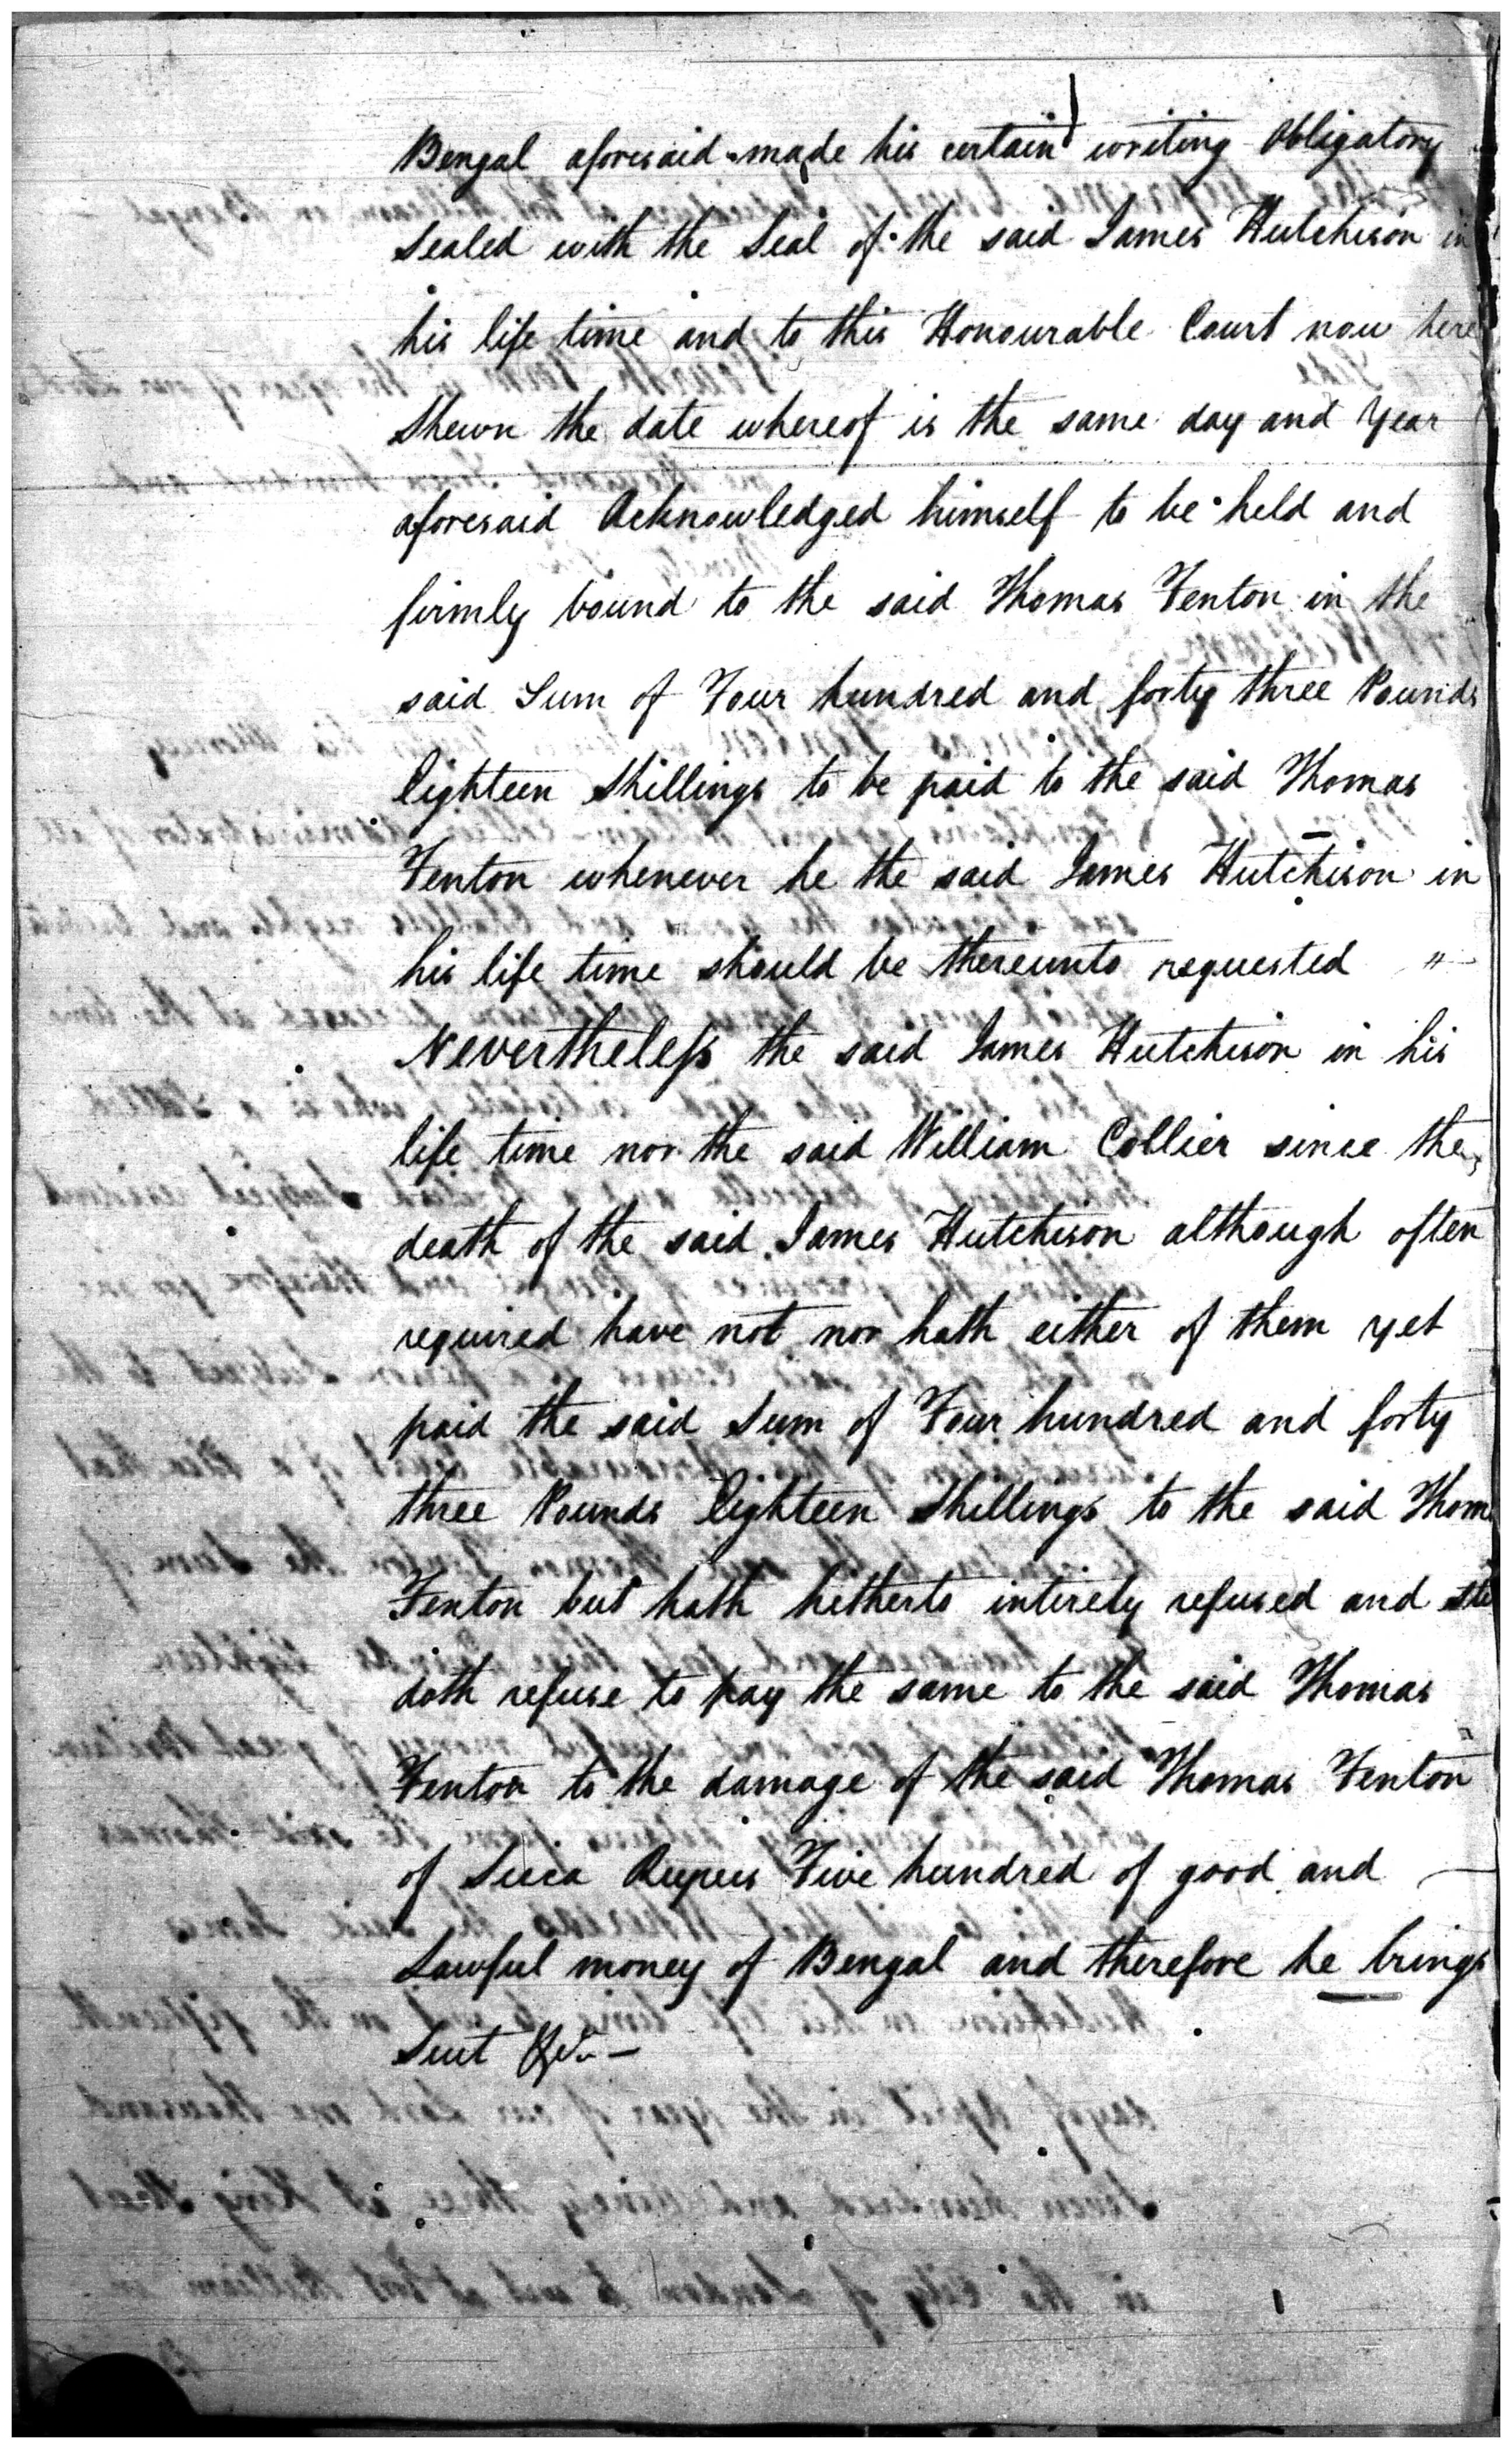 Bengal aforesaid made his certain writing Obligatory
Sealed with the Seal of the said James Hutchison in
his life time and to this Honourable Court now here
Shewn the date whereof is the same day and Year
aforesaid Acknowledged himself to be held and
firmly bound to the said Thomas Fenton in the
said Sum of Four hundred and forty three Pounds
Eighteen Shillings to be paid to the said Thomas
Fenton whenever he the said James Hutchison in
his life time should be thereunto requested "
Nevertheless the said James Hutchison in his
life time nor the said William Collier since the
death of the said James Hutchison although often
required have not nor hath either of them yet
paid the said Sum of Four hundred and forty
three Pounds Eighteen Shillings to the said Thom
Fenton but hath hetherto intirely refused and
doth refuse to pay the same to the said Thomas
Fenton to the damage of the said Thomas Fenton
of Sicca Rupees Five hundred of good and
Lawful money of Bengal and therefore he brings
Suit &c. —